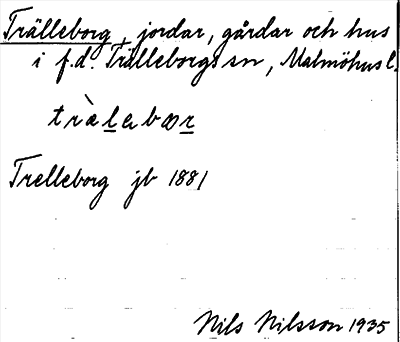 Trälleborg, jordar, gårdar och hus
i f.d. Trälleborgs sn, Malmöhus l.
tràlabœr
Trelleborg jb 1881
Nils Nilsson 1935